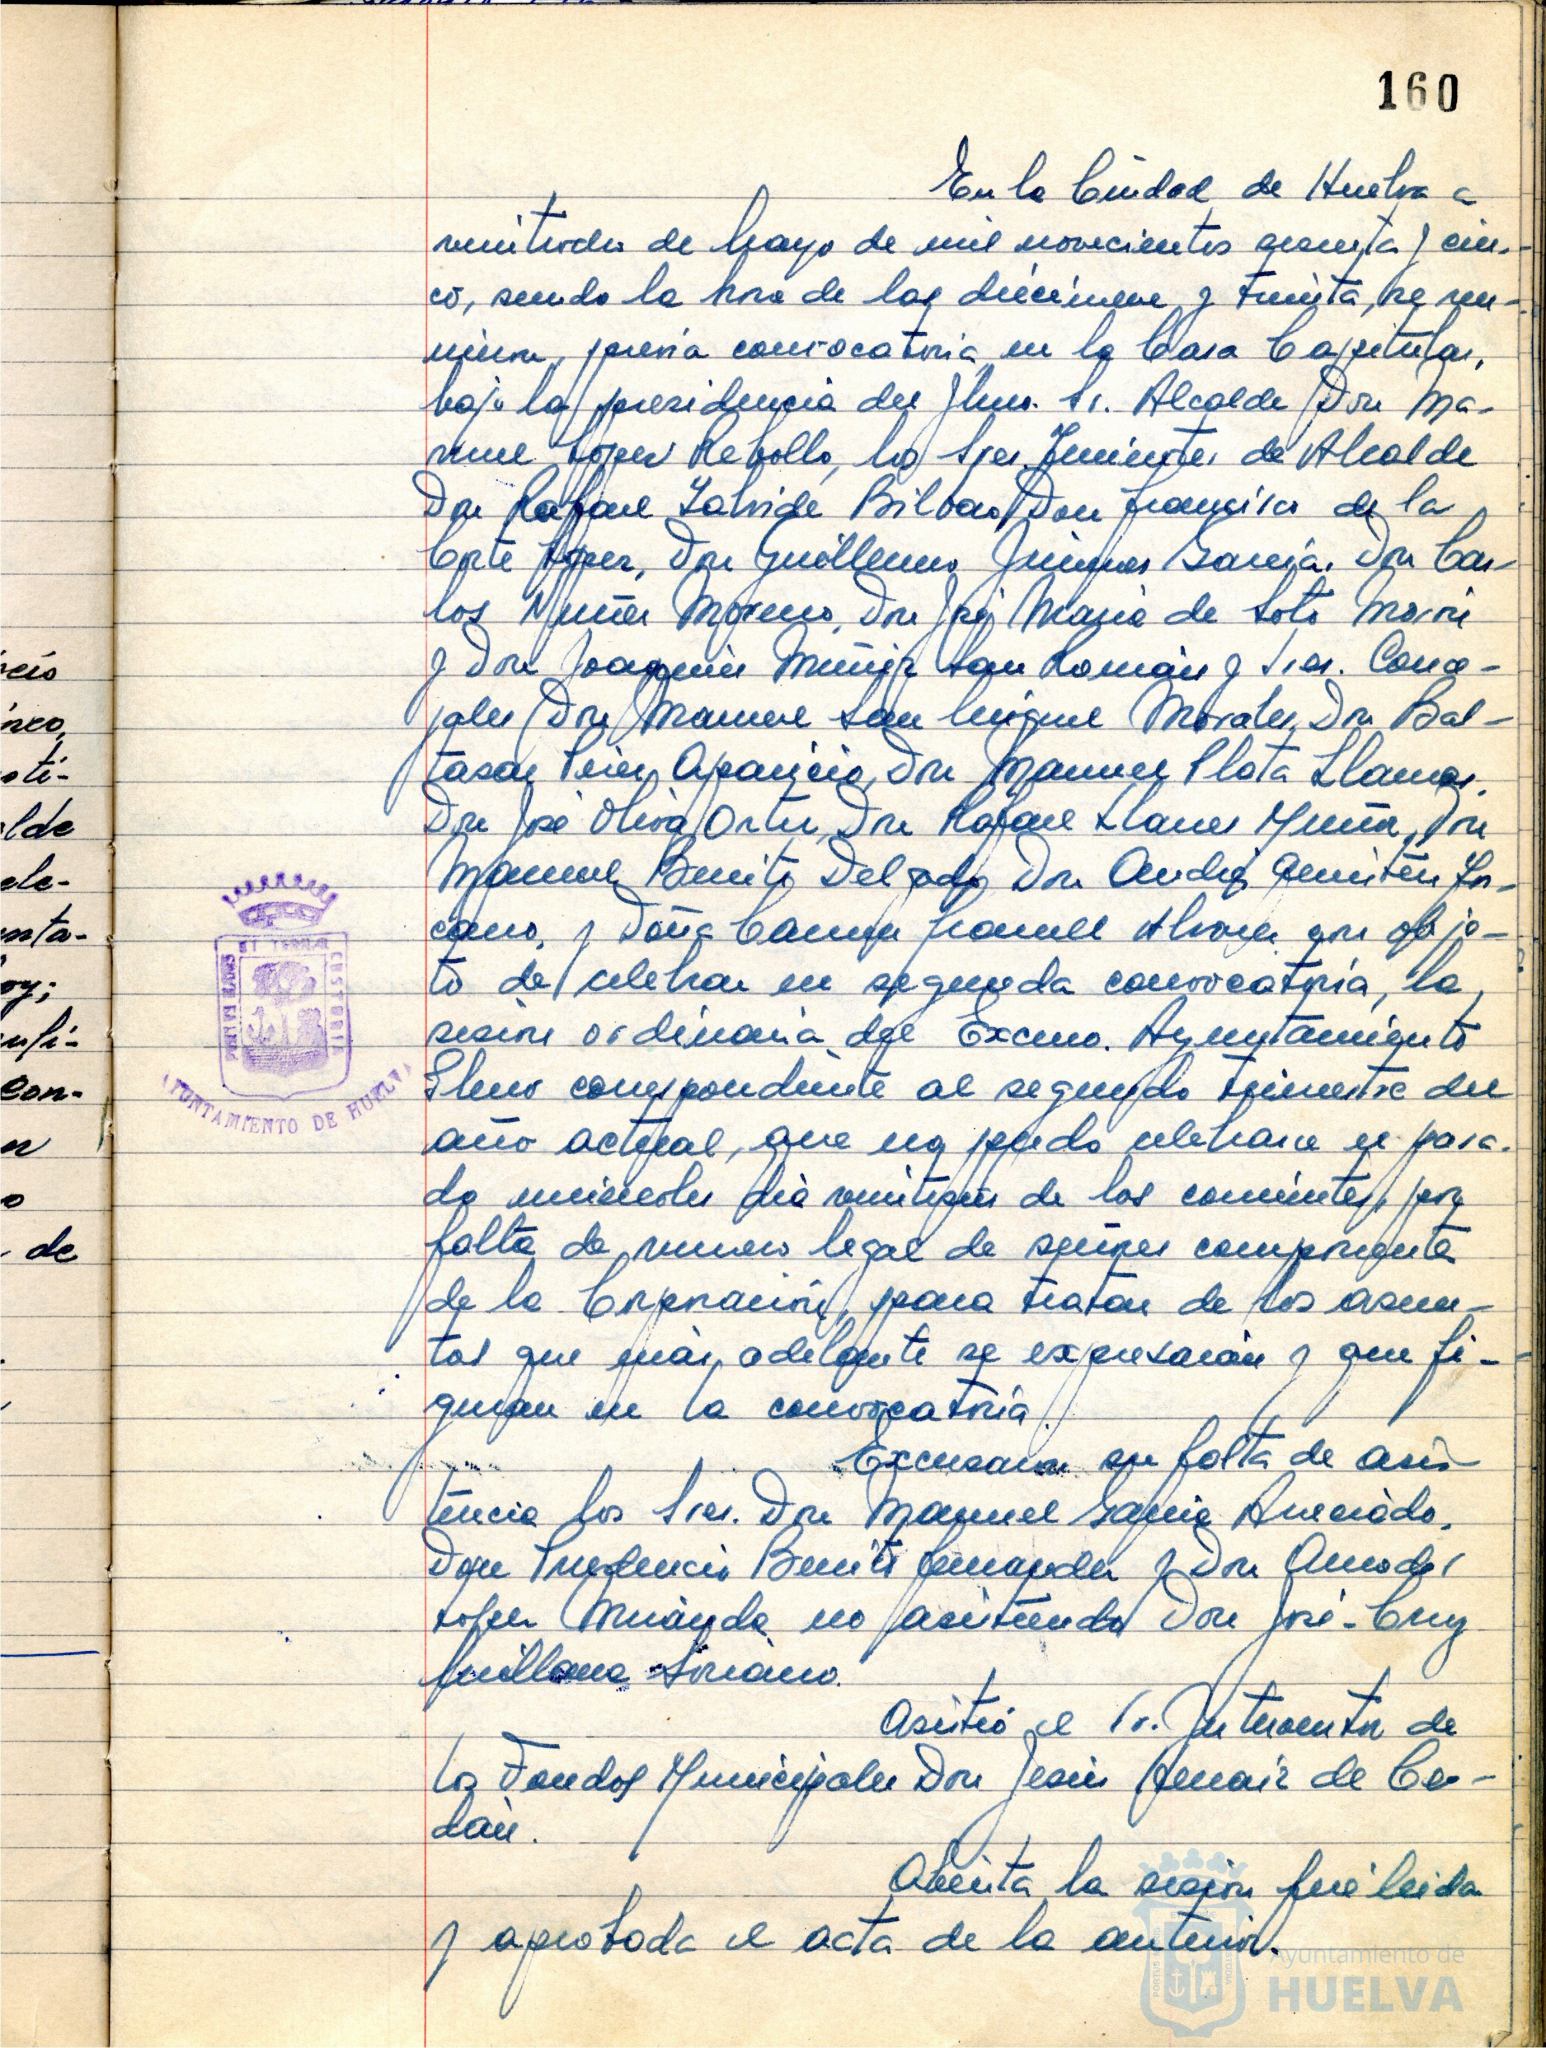 160
En la Ciudad de Huelva a
veintiocho de Mayo de mil novecientos sesenta y cin-
co, siendo la hora de las diecinueve y treinta, se reu-
nieron, previa convocatoria en la Casa Capitular,
bajo la presidencia del Ilmo. Sr. Alcalde Don Ma-
nuel López Rebollo, los Sres. Tenientes de Alcalde
Don Rafael Zalvide Bilbao, Don Francisco de la
Corte López, Don Guillermo Jiménez García, Don Car-
los Núñez Moreno, Don José María de Soto Morón
y Don Joaquín Muñiz San Román y Sres. Conce-
jales Don Manuel San Miguel Morales, Don Bal-
tasar Pérez Aparicio, Don Manuel Plata Llamas,
Don José Oliva Ortiz, Don Rafael Llanes Muñiz, Don
Manuel Benito Delgado, Don Andrés
cano, y Doña Carmen Alvarez con obje-
to de celebrar en segunda convocatoria, la
sesión ordinaria del Excmo. Ayuntamiento
Pleno correspondiente al segundo trimestre del
año actual, que no pudo celebrarse el pasa-
do miércoles día veintiseis de los corrientes, por
falta de número legal de señores componentes
de la Corporación, para tratar de los asun-
tos que más adelante se expresarán y que fi-
guran en la convocatoria.
Excusaron su falta de asis-
tencia los Sres. Don Manuel García
Don Prudencio Benito Fernández y Don Amador
López Miranda no asistiendo Don José-Cruz
Soriano.
Asistió el Sr. Interventor de
los Fondos Municipales Don Jesús de Ce-
dán.
Abierta la sesión fué leida
y aprobada el acta de la anterior.
PORTUS MARIS
ET TERRAE
CUSTODIA
AYUNTAMIENTO DE HUELVA
Ayuntamiento de
HUELVA